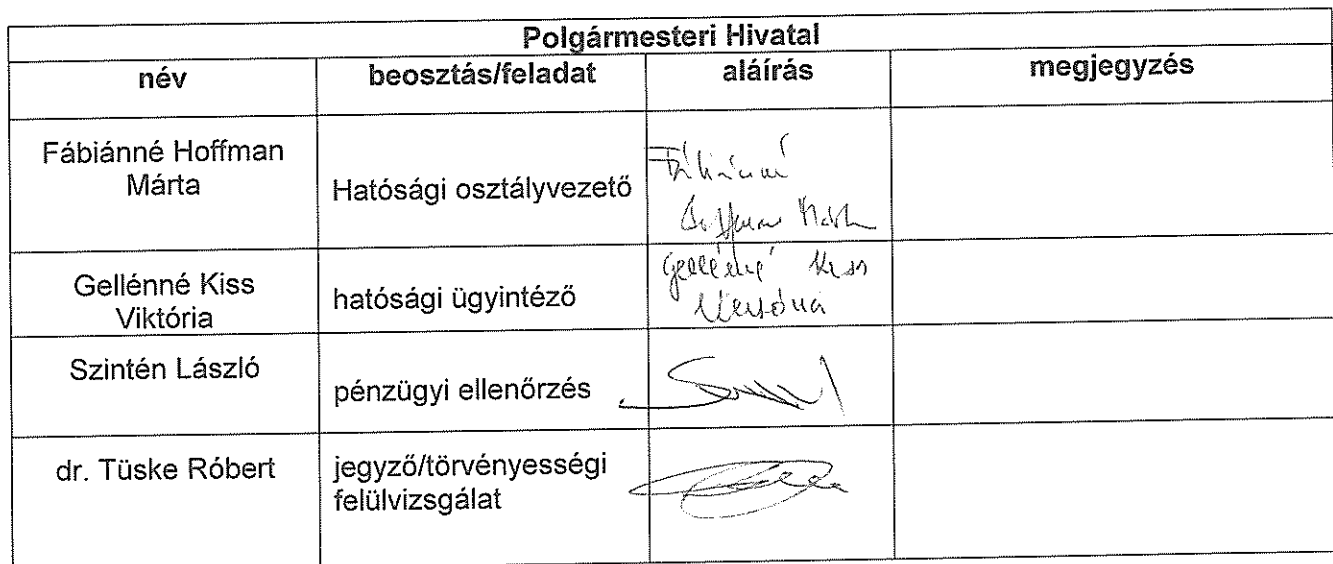 Polgármesteri Hivatal
név beosztás/feladat aláírás megjegyzés
Fábiánné Hoffman
Márta
Hatósági osztályvezető
Fábiánné
Hoffman Márta
Gellénné Kiss
Viktória
hatósági ügyintéző
Gellénné Kiss
Viktória
Szintén László
pénzügyi ellenőrzés
dr. Tüske Róbert
jegyző/törvényességi
felülvizsgálat